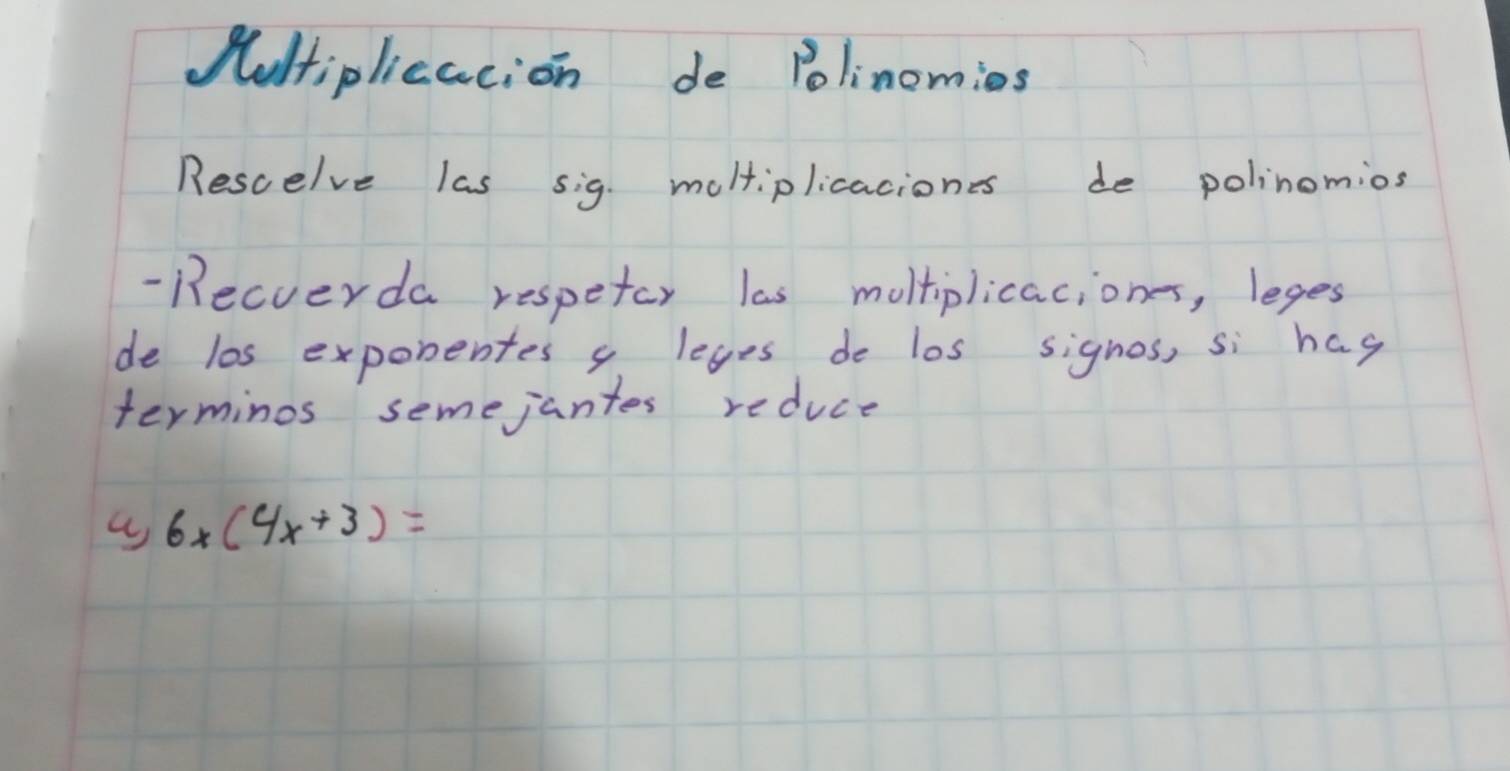 Multiplicación de Polinomios
Resuelve las sig. multiplicaciones de polinomios
-Recuerda respetar las multiplicaciones, leyes
de los exponentes y leyes de los signos, si hay
terminos semejantes reduce
a) 6x(4x+3)=